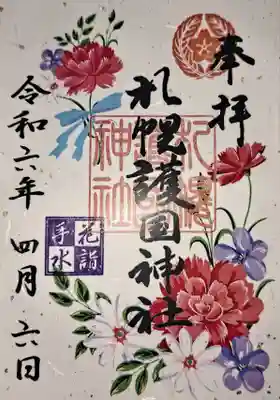 奉拝
札幌護国神社
令和六年 四月 六日
札幌護国神社
花詣
手水